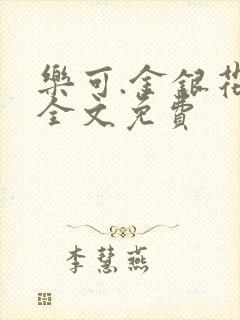 樂可.金銀花
全文免費
李慧燕